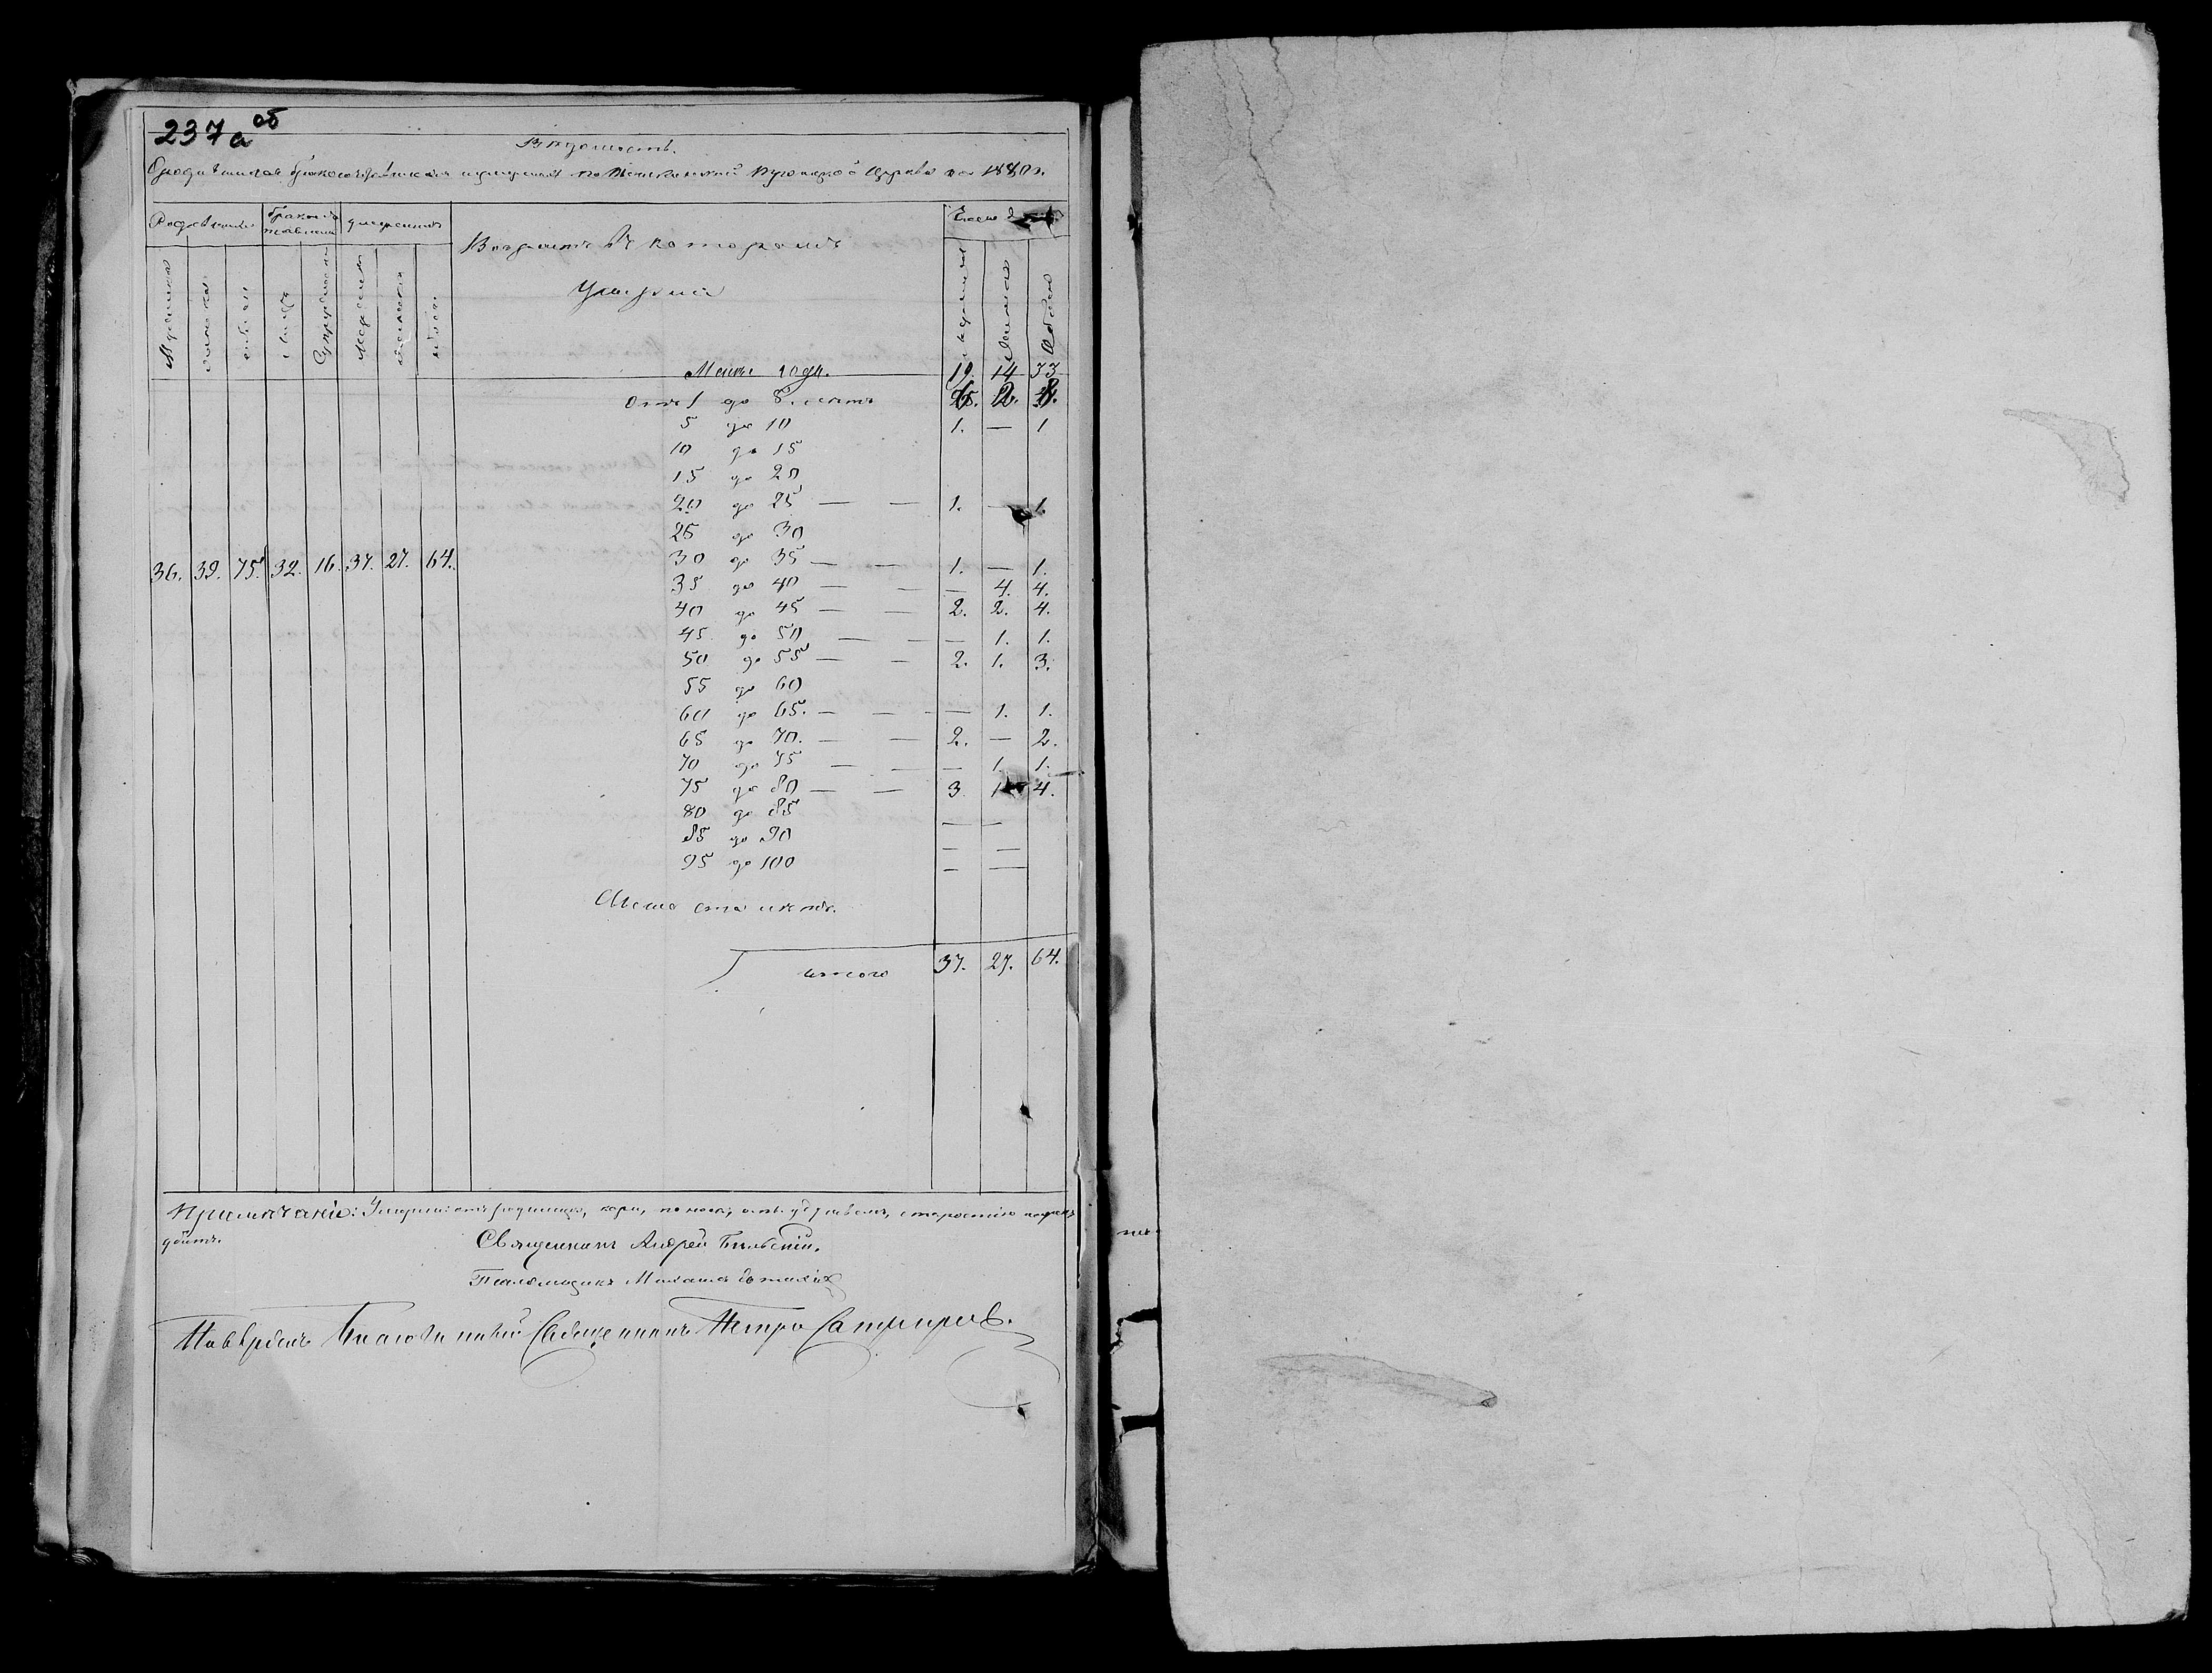 237а об
Вѣдомость.
О родившихся бракосочетавшихся и умершихъ по Троицкой Церкви за 1880 г.
Родившихся умершихъ Число
Возрастъ въ которомъ
Умерли
Мужеска женска обоего лицъ Супружествъ Мужеска женска обоего мужеска Женска Обоего
Менѣе года. 19. 14 33
Отъ 1 до 5. лѣтъ 6. 2. 8.
5 до 10 1. — 1
10 до 15
15 до 20
20 до 25 — — 1. — 1.
25 до 30
36. 39. 75. 32. 16. 37. 27. 64. 30 до 35 — — 1. — 1.
35 до 40 — — — 4. 4.
40 до 45 — — 2. 2. 4.
45. до 50 — — — 1. 1.
50 до 55 — — 2. 1. 3.
55 до 60
60 до 65. — — — 1. 1.
65 до 70. — — 2. — 2.
70 до 75 — — — 1. 1.
75 до 80 — — 3 1 4.
80 до 85 — —
85 до 90 — —
95 до 100 — —
Свыше ста лѣтъ.
итого 37. 27. 64.
Примѣчаніе: Умерли отъ родимца, кори, поноса, старостію
Священникъ Андрей Бѣльскій.
Псаломщикъ
Повѣрялъ Благочинный Священникъ Петръ Сатириевъ.